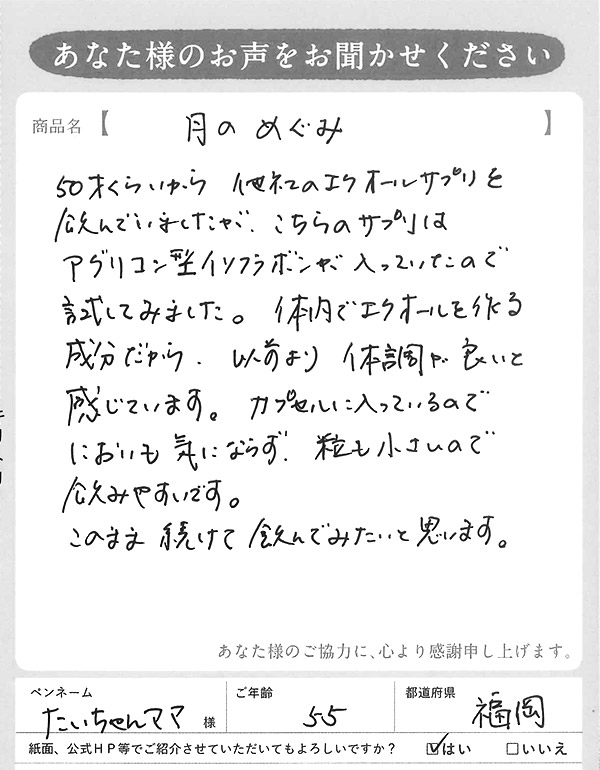 あなた様のお声をお聞かせください
商品名【 月のめぐみ 】
50才くらいから 他社のエクオールサプリを
飲んでいましたが、こちらのサプリは
アグリコン型イソフラボンが入っていたので
試してみました。体内でエクオールを作る
成分だから、以前より体調が良いと
感じています。カプセルに入っているので
においも気にならず、粒も小さいので
飲みやすいです。
このまま続けて飲んでみたいと思います。
あなた様のご協力に、心より感謝申し上げます。
ペンネーム たいちゃんママ 様 ご年齢 55 都道府県 福岡
紙面、公式HP等でご紹介させていただいてもよろしいですか？ ☑はい □いいえ